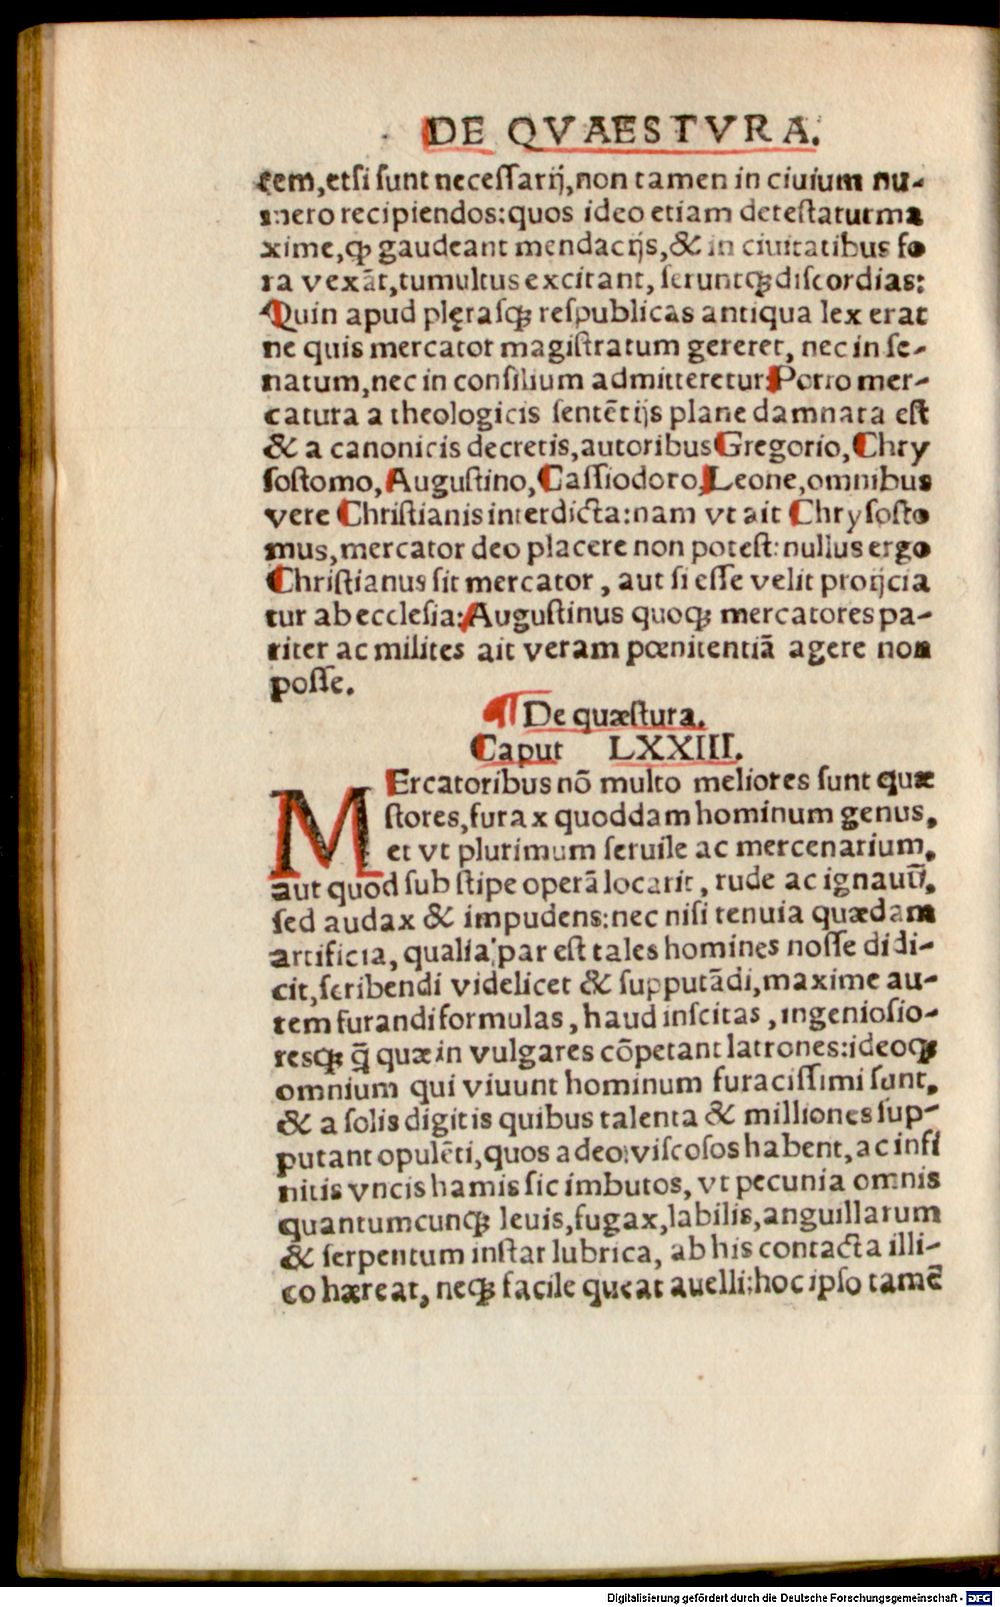 DE QVAESTVRA.
tem,etsi sunt necessarij,non tamen in ciuium nu-
mero recipiendos:quos ideo etiam detestatur ma
xime,ꝙ gaudeant mendacijs,& in ciuitatibus fo
ra vexãt,tumultus excitant, seruntqꝫ discordias:
Quin apud plęrasqꝫ respublicas antiqua lex erat
ne quis mercator magistratum gereret, nec in se-
natum,nec in consilium admitteretur:Porro mer-
catura a theologicis sentẽtijs plane damnata est
& a canonicis decretis,autoribus Gregorio, Chry
sostomo, Augustino, Cassiodoro, Leone,omnibus
vere Christianis interdicta:nam vt ait Chrysosto
mus,mercator deo placere non potest:nullus ergo
Christianus sit mercator, aut si esse velit proijcia
tur ab ecclesia:Augustinus quoqꝫ mercatores pa-
riter ac milites ait veram pœnitentiã agere non
posse.
¶ De quæstura.
Caput LXXIII.
MErcatoribus nõ multo meliores sunt quæ
stores,furax quoddam hominum genus,
et vt plurimum seruile ac mercenarium,
aut quod sub stipe operã locarit, rude ac ignauũ,
sed audax & impudens:nec nisi tenuia quædam
artificia, qualia par est tales homines nosse didi-
cit,scribendi videlicet & supputãdi,maxime au-
tem furandi formulas, haud inscitas, ingeniosio-
resqꝫ q̃ quæ in vulgares cõpetant latrones:ideoqꝫ
omnium qui viuunt hominum furacissimi sunt,
& a solis digitis quibus talenta & milliones sup-
putant opulẽti,quos adeo viscosos habent, ac infi
nitis vncis hamis sic imbutos, vt pecunia omnis
quantumcunqꝫ leuis,fugax,labilis,anguillarum
& serpentum instar lubrica, ab his contacta illi-
co hæreat, neqꝫ facile queat auelli:hoc ipso tamẽ
Digitalisierung gefördert durch die Deutsche Forschungsgemeinschaft - DFG